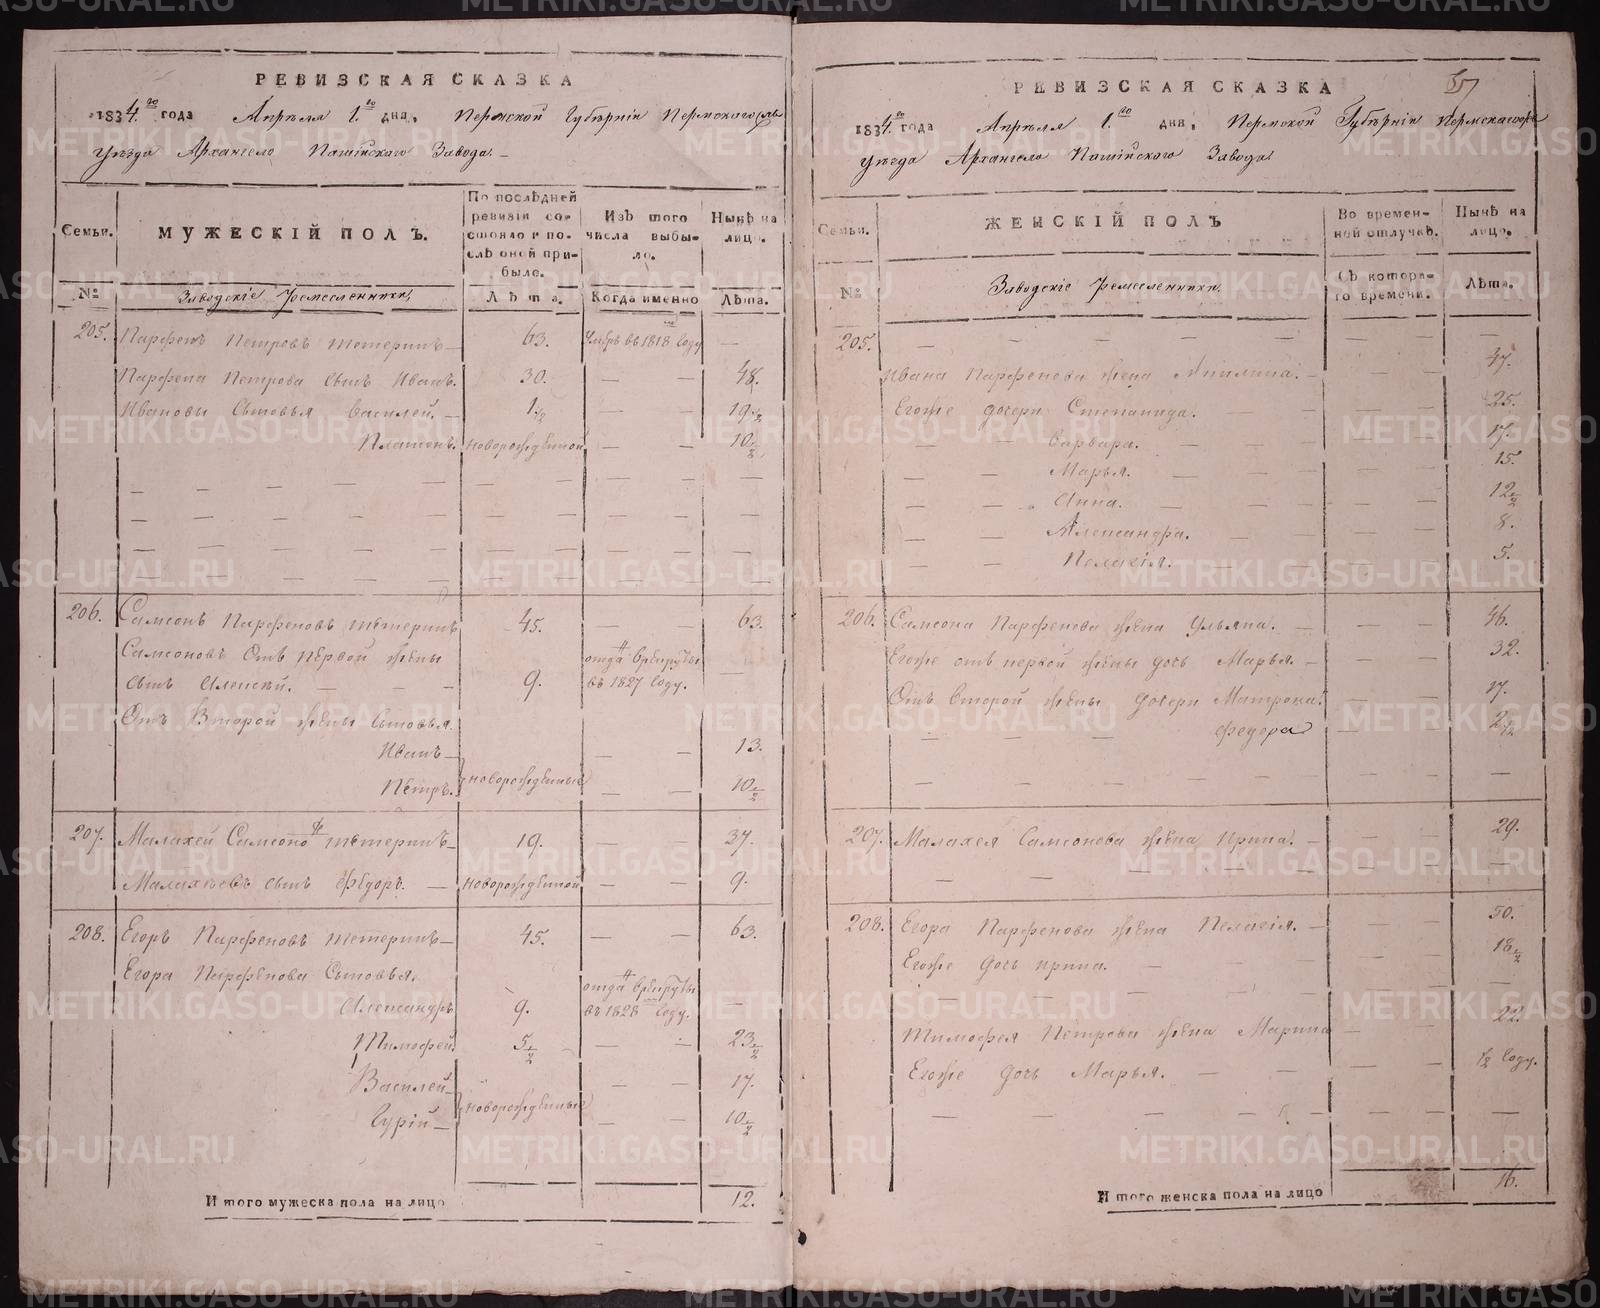 РЕВИЗСКАЯ СКАЗКА
1834го года Апрѣля 1го дня, Пермской Губѣрніи Пермскаго
уѣзда Архангело Пашійскаго Завода.
Семьи.
МУЖЕСКІЙ ПОЛЪ.
По послѣдней
ревизіи со-
стояло и по-
слѣ оной при-
было.
Изъ того
числа выбы-
ло.
Нынѣ на
лицо.
№
Заводскіе Ремесленники,
Лѣта.
Когда именно
Лѣта.
205. Парфенъ Петровъ Тетеринъ 63. умѣръ въ 1818 году —
Парфена Петрова сынъ Иванъ. 30. — — 48.
Ивановы сыновья Василей. 1 1/2 — — 19 1/2
Платонъ. новорожденной — — 10 1/2
206. Самсонъ Парфеновъ Тетеринъ 45. — — 63.
Самсоновъ Отъ первой жены
сынъ Алексѣй. 9. отданъ в рекруты въ 1827 году. —
Отъ Второй жены Сыновья.
Иванъ — 13.
Петръ. новорожденные — — 10 1/2
207. Малахей Самсоновъ Тетеринъ 19. — — 37.
Малахѣевъ сынъ Федоръ. — новорожденной — — 9.
208. Егоръ Парфеновъ Тетеринъ 45. — — 63.
Егора Парфенова Сыновья.
Александръ 9. отданъ в рекруты въ 1828 году. —
Тимофей. 5 1/2 — — 23 1/2
Василей — — 17.
Гурій новорожденные — — 10 1/2
И того мужеска пола на лицо 12.
РЕВИЗСКАЯ СКАЗКА
1834го года Апрѣля 1го дня, Пермской Губѣрніи Пермскаго
уѣзда Архангело Пашійскаго Завода
Семьи.
ЖЕНСКІЙ ПОЛЪ
Во времен-
ной отлучкѣ.
Нынѣ на
лицо.
№
Заводскіе Ремесленники,
Съ котора-
го времени.
Лѣта.
205. — — — — — —
Ивана Парфенова жена Акилина. — 47.
Егоже дочери Степанида. — — 25.
— — Варвара. — — 17.
— — Марья. — — 15.
— — Анна. — — 12 1/2
— — Александра. — — 8.
Пелагія. — — 5.
206. Самсона Парфенова жена Ульяна. — — 46.
Егоже отъ первой жены дочь Марья. — — 32.
Отъ Второй жены дочери Матрона. — — 17.
— — — Федора — — 2 1/2
207. Малахея Самсонова жена Ирина. — — 29.
208. Егора Парфенова жена Пелагія. — — 50.
Егоже дочь Ирина. — — 18 1/2
Тимофея Петрова жена Марина — — 22.
Егоже дочь Марья. — — 1/2 году.
И того женска пола на лицо 16.
METRIKI.GASO-URAL.RU